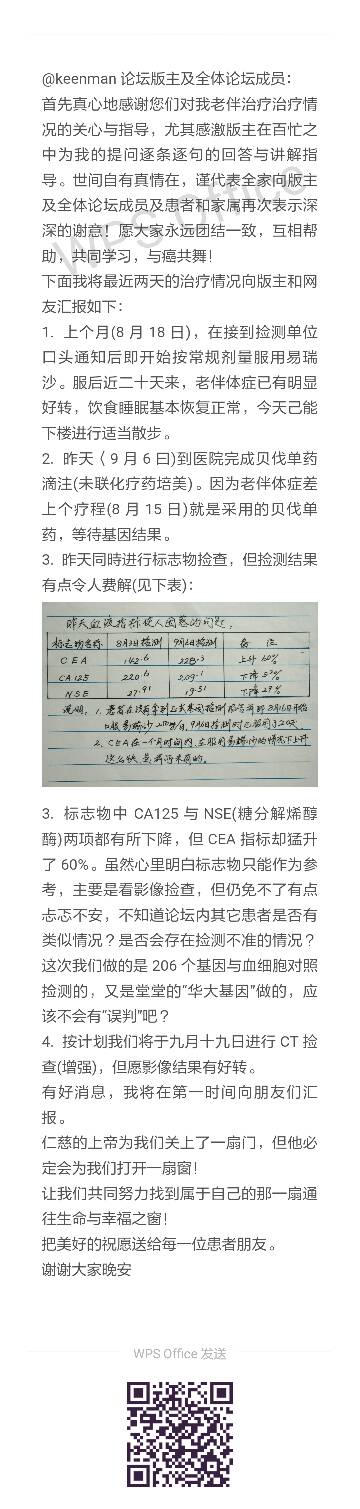 @keenman 论坛版主及全体论坛成员：
首先真心地感谢您们对我老伴治疗治疗情
况的关心与指导，尤其感激版主在百忙之
中为我的提问逐条逐句的回答与讲解指
导。世间自有真情在，谨代表全家向版主
及全体论坛成员及患者和家属再次表示深
深的谢意！愿大家永远团结一致，互相帮
助，共同学习，与癌共舞！
下面我将最近两天的治疗情况向版主和网
友汇报如下：
1. 上个月(8 月 18 日)，在接到捡测单位
口头通知后即开始按常规剂量服用易瑞
沙。服后近二十天来，老伴体症已有明显
好转，饮食睡眠基本恢复正常，今天己能
下楼进行适当散步。
2. 昨天〈 9 月 6 曰)到医院完成贝伐单药
滴注(未联化疗药培美)。因为老伴体症差
上个疗程(8 月 15 日)就是采用的贝伐单
药，等待基因结果。
3. 昨天同時进行标志物捡查，但捡测结果
有点令人费解(见下表)：
昨天血液指标使人困惑的问题。
标志物名称 8月3日检测 9月6日检测 备 注
CEA 142.6 228.3 上升 60%
CA125 220.6 209.1 下降 5%
NSE 27.91 19.51 下降 29%
3. 标志物中 CA125 与 NSE(糖分解烯醇
酶)两项都有所下降，但 CEA 指标却猛升
了 60%。虽然心里明白标志物只能作为参
考，主要是看影像捡查，但仍免不了有点
忐忑不安，不知道论坛内其它患者是否有
类似情况？是否会存在捡测不准的情况？
这次我们做的是 206 个基因与血细胞对照
捡测的，又是堂堂的“华大基因”做的，应
该不会有“误判”吧？
4. 按计划我们将于九月十九日进行 CT 捡
查(增强)，但愿影像结果有好转。
有好消息，我将在第一时间向朋友们汇
报。
仁慈的上帝为我们关上了一扇门，但他必
定会为我们打开一扇窗！
让我们共同努力找到属于自己的那一扇通
往生命与幸福之窗！
把美好的祝愿送给每一位患者朋友。
谢谢大家晚安
WPS Office
WPS Office 发送